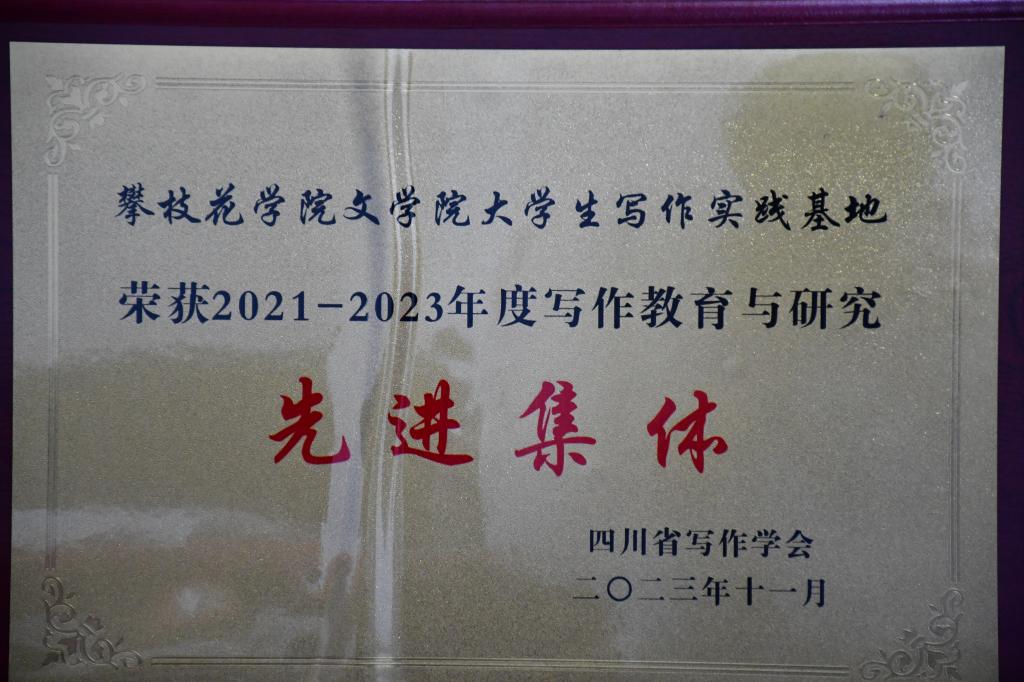 攀枝花学院文学院大学生写作实践基地
荣获2021-2023年度写作教育与研究
先进集体
四川省写作学会
二〇二三年十一月